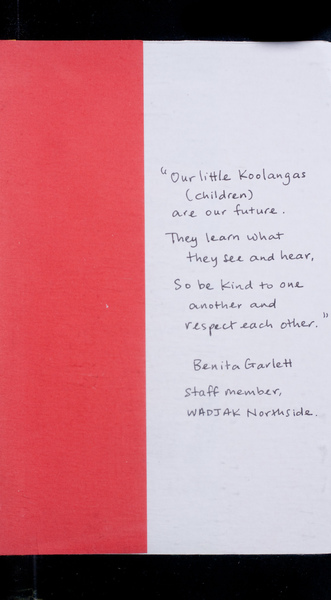 "Our little Koolangas
(children)
are our future.
They learn what
they see and hear,
So be kind to one
another and
respect each other."
Benita Garlett
staff member,
WADJAK Northside.